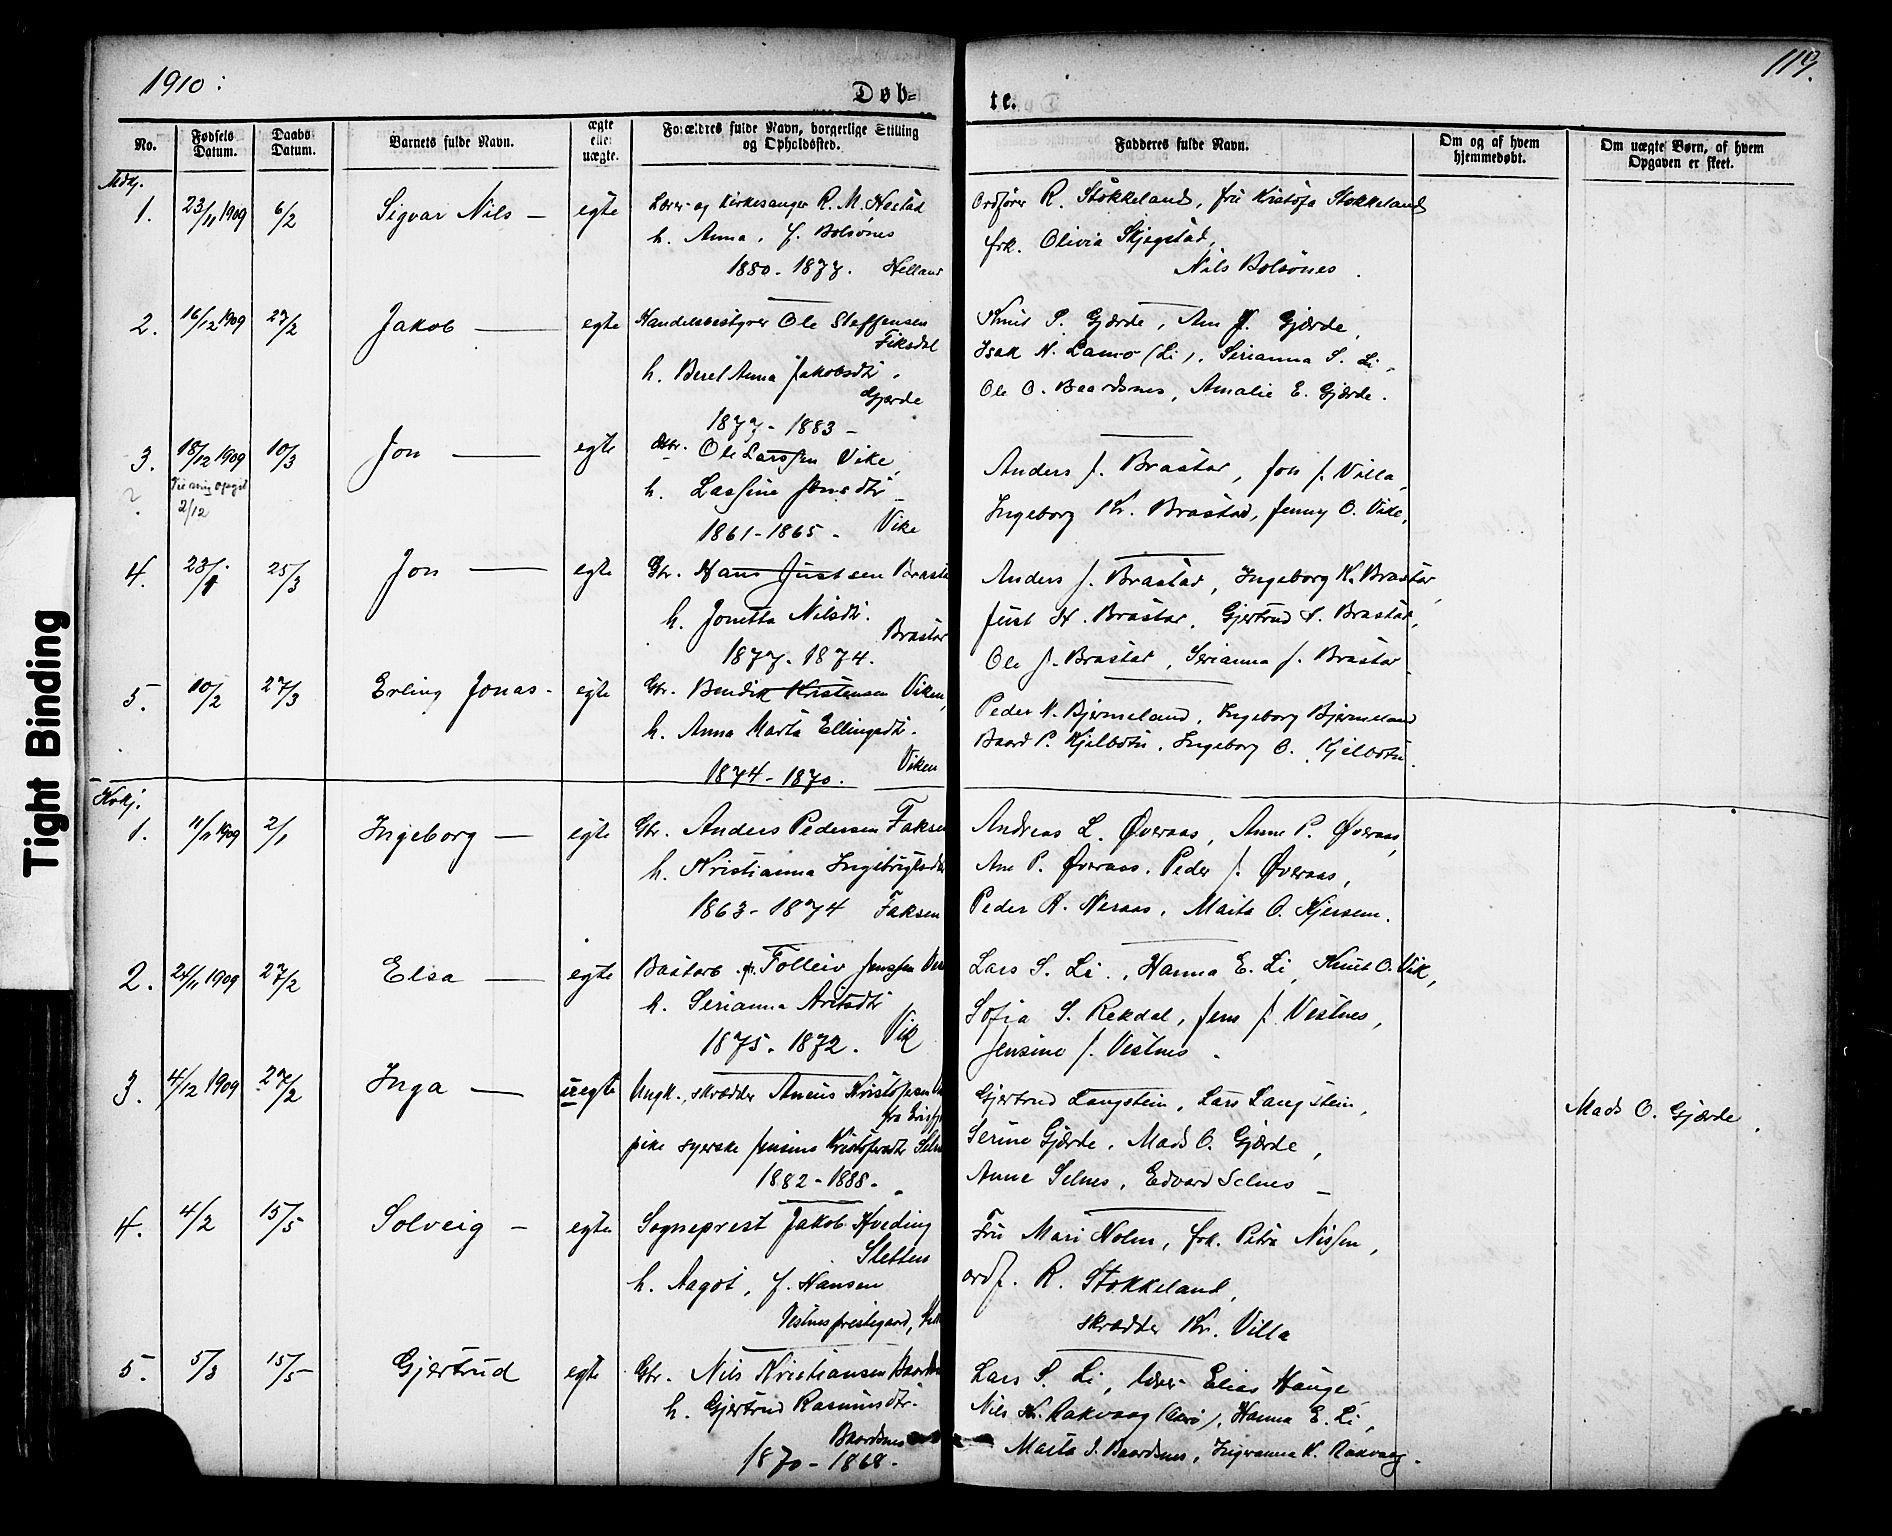 1910:
Døb=
te.
119.
No.
Fødsels Datum.
Daabs Datum.
Barnets fulde Navn.
ægte eller uægte.
Forældres fulde Navn, borgerlige Stilling og Opholdssted.
Fadderes fulde Navn.
Om og af hvem hjemmedøbt.
Om uægte Børn, af hvem Opgaven er skeet.
Mdkj.
1. 23/11 1909 6/2 Sigvar Nils — egte Lærer- og kirkesanger R. M. Hestad
h. Anna, f. Bolsønes
1880 - 1877. Helland
Ordfører R. Stokkeland, fru Kristofa Stokkeland
frk. Olivia Skjegstad,
Nils Bolsönes.
2. 16/12 1909 27/2 Jakob — egte Handelsbestyrer Ole Steffensen
Fiksdal
h. Beret Anna Jakobsdtr.
Gjerde
1877 - 1883 -
Knut S. Gjærde, Ane K. Gjærde,
Isak N. Lamo (Li), Serianna S. Li,
Ole O. Baardsnes, Amalie E. Gjærde.
3. 18/12 1909 10/3 Jon — egte Ole Larssen Vike,
2/12
h. Lassine Jonsdtr -
1861 - 1865 - Vike
Anders J. Brastad, Jon J. Villa,
Ingeborg Kr. Brastad, Jenny O. Vike,
4. 23/1 25/3 Jon — egte Gbr. Hans Justsen Brasta
h. Jonetta Nilsdtr.
Brastad
1877 - 1874.
Anders J. Brastad, Ingeborg K. Brastad,
Just H. Brastad, Gjertrud A. Brastad,
Ole J. Brastad, Serianna J. Brastad
5. 10/2 27/3 Erling Jonas - egte Gbr. Bendik Kristensen Viken,
h. Anna Marta Ellingsdtr.
1874 - 1870. Viken
Peder N. Bjermeland, Ingeborg Bjermeland
Baard P. Kjelbotn, Ingeborg O. Kjelbotn.
Kvkj.
1. 11/11 1909 2/1 Ingeborg — egte Gbr. Anders Pedersen Faksen
h. Kristianna Ingebrigtsdtr
1863 - 1874 Faksen
Andreas L. Øveraas, Anne P. Øveraas,
Ane P. Øveraas, Peder J. Øveraas,
Peder A. Neraas, Marta O. Kjersem.
2. 24/11 1909 27/2 Elsa — egte Baatarb. Tolleiv Jenssen
h. Serianna Arntsdtr
1875 - 1872. Vik
Lars S. Li, Hanna E. Li, Knut O. Vik,
Sofia S. Rekdal, Jens J. Vestnes,
Jensine J. Vestnes.
3. 4/12 1909 27/2 Inga — uegte Ungk., skrædder Aneus Kristofersen
fra
pike syerske Jensine Kristofersdtr Selnes
1882 - 1888.
Gjertrud Langstein, Lars Langstein,
Serine Gjærde, Mads O. Gjærde,
Anne Selnes, Edvard Selnes
Mads O. Gjærde.
4. 4/2 15/5 Solveig - egte Sogneprest Jakob Hveding
Sletten
h. Aagot, f. Hansen
Vestnes prestegaard,
Fru Mari Holm, frk. Petra Nissen,
ordf. R. Stokkeland,
skrædder Kr. Villa
5. 5/3 15/5 Gjertrud egte Gbr. Nils Kristiansen Baardsnes
h. Gjertrud Rasmusdtr.
Baardsnes
1870 - 1868.
Lars S. Li, lærer Elias Hauge
Nils K. Rakvaag (Aarø), Hanna E. Li,
Marta J. Baardsnes, Ingeranna K. Rakvaag.
Tight Binding